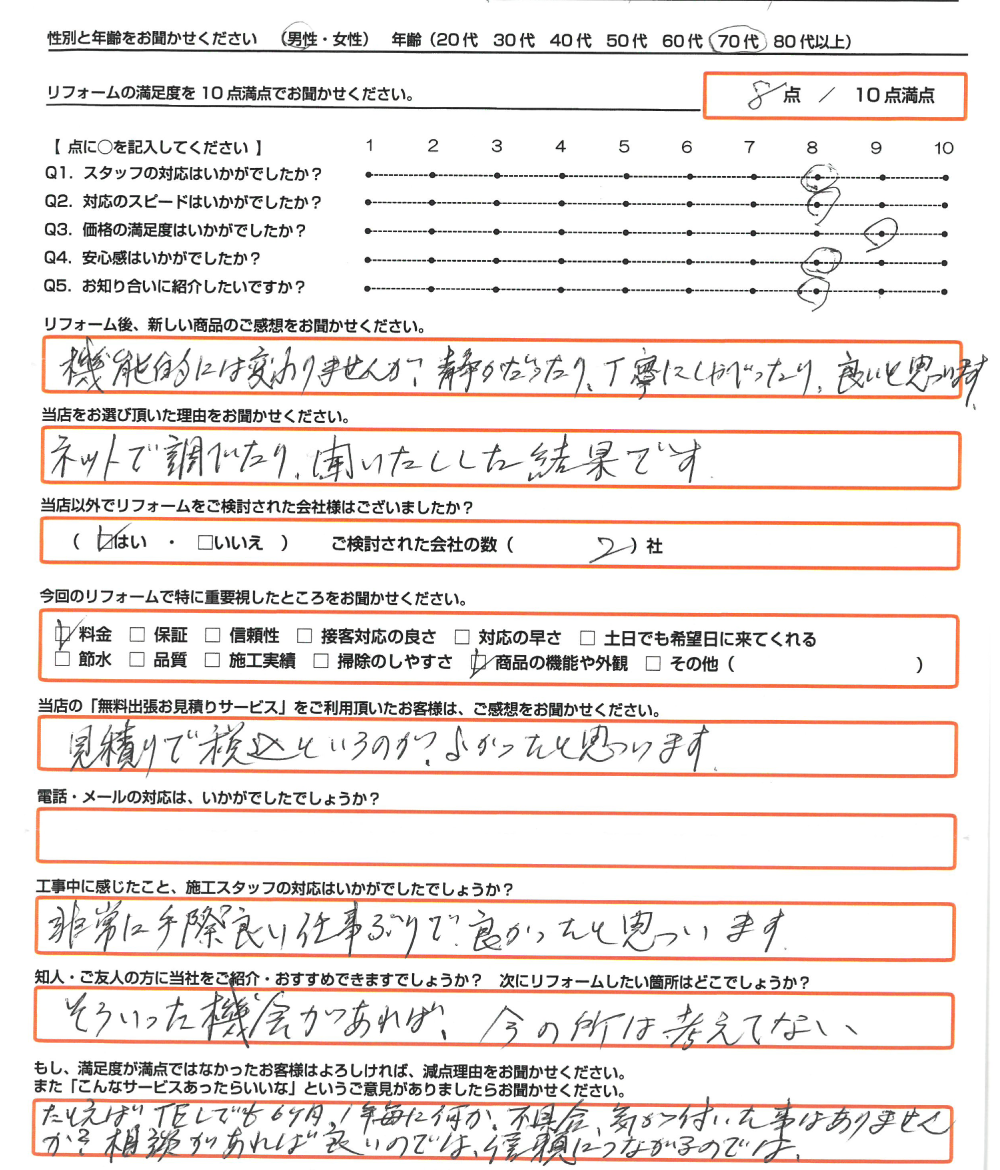 性別と年齢をお聞かせください (男性・女性) 年齢(20代 30代 40代 50代 60代 70代 80代以上)
リフォームの満足度を10点満点でお聞かせください。 8点 / 10点満点
【 点に○を記入してください 】 1 2 3 4 5 6 7 8 9 10
Q1. スタッフの対応はいかがでしたか？
Q2. 対応のスピードはいかがでしたか？
Q3. 価格の満足度はいかがでしたか？
Q4. 安心感はいかがでしたか？
Q5. お知り合いに紹介したいですか？
リフォーム後、新しい商品のご感想をお聞かせください。
機能的には変わりませんが、静かだったり、丁寧にしゃべったり、良いと思います。
当店をお選び頂いた理由をお聞かせください。
ネットで調べたり、聞いたりした結果です。
当店以外でリフォームをご検討された会社様はございましたか？
( □はい ・ □いいえ ) ご検討された会社の数( 2 )社
今回のリフォームで特に重要視したところをお聞かせください。
□ 料金 □ 保証 □ 信頼性 □ 接客対応の良さ □ 対応の早さ □ 土日でも希望日に来てくれる
□ 節水 □ 品質 □ 施工実績 □ 掃除のしやすさ □ 商品の機能や外観 □ その他( )
当店の「無料出張お見積りサービス」をご利用頂いたお客様は、ご感想をお聞かせください。
見積りで税込というのが、よかったと思います。
電話・メールの対応は、いかがでしたでしょうか？
工事中に感じたこと、施工スタッフの対応はいかがでしたでしょうか？
非常に手際良い仕事ぶりで、良かったと思います。
知人・ご友人の方に当社をご紹介・おすすめできますでしょうか？ 次にリフォームしたい箇所はどこでしょうか？
そういった機会があれば、今の所は考えてない、
もし、満足度が満点ではなかったお客様はよろしければ、減点理由をお聞かせください。
また「こんなサービスあったらいいな」というご意見がありましたらお聞かせください。
たとえばTELでも6ケ月、1年毎に何か、不具合、気が付いた事はありません
か？相談があれば良いのでは、信頼につながるのでは、